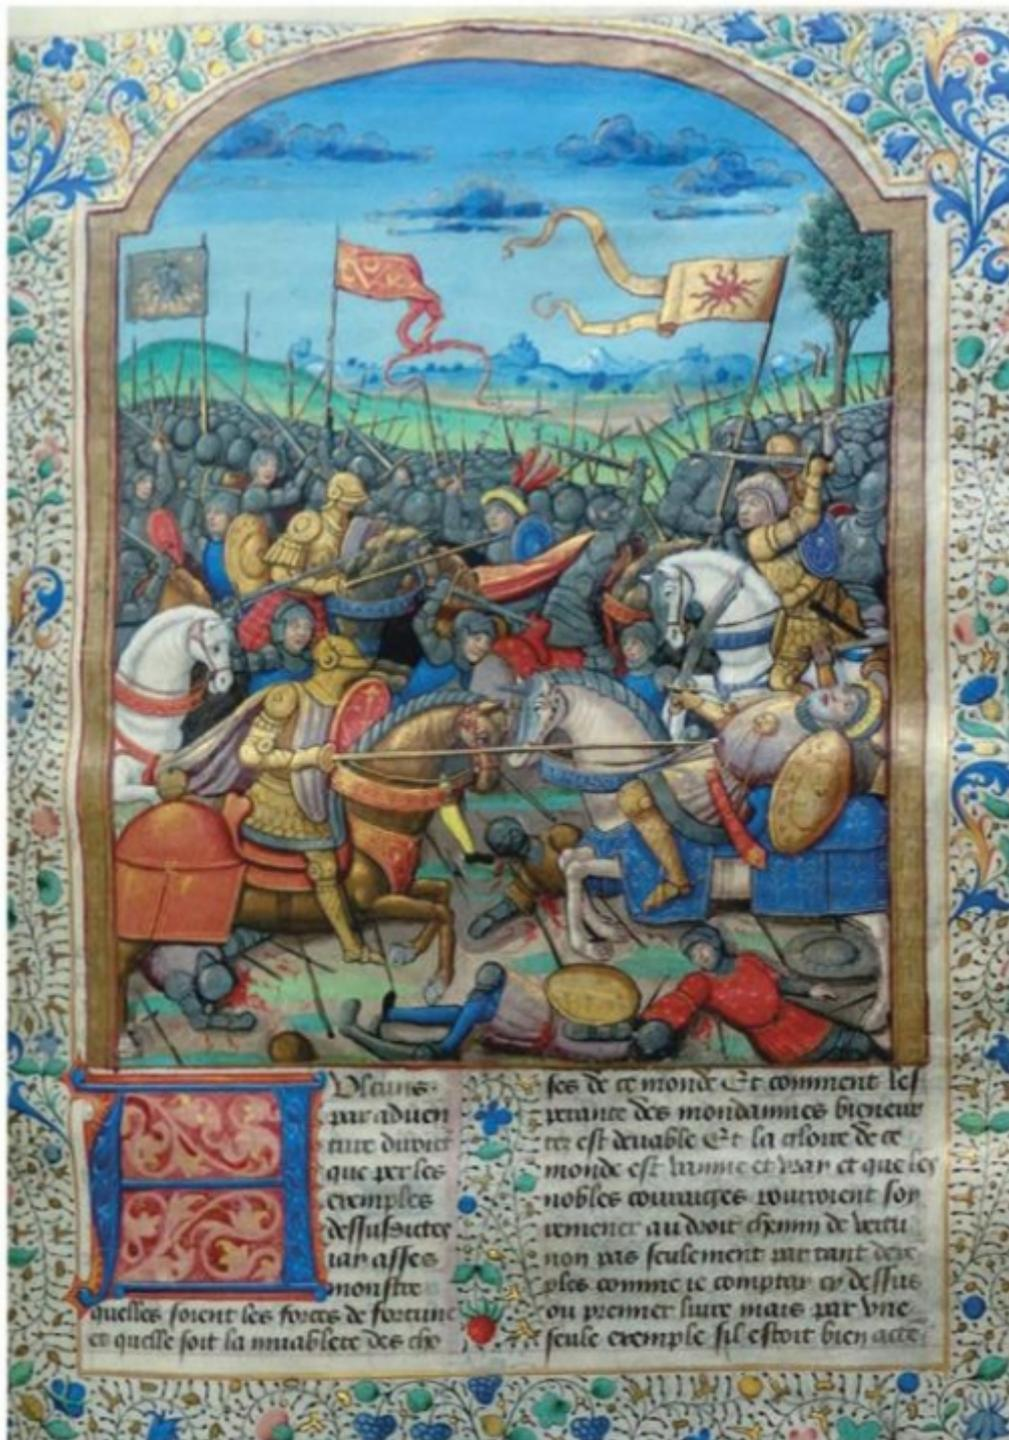 Aulcuns
par aduen
ture diroit
que par les
exemples
dessusdictes
iay asses
monstre
quelles soient les forces de fortune
et quelle soit la muablete des cho
ses de ce monde Et comment les
perance des mondainnes bieneur
tez est deuable Et la gloire de ce
monde est vainne et
et que les
nobles couraiges pourroient soy
remener au droit chemin de vertu
non pas seulement par tant dexe
ples comme ie comptay cy dessus
ou premier liure mais par vne
seule exemple sil estoit bien